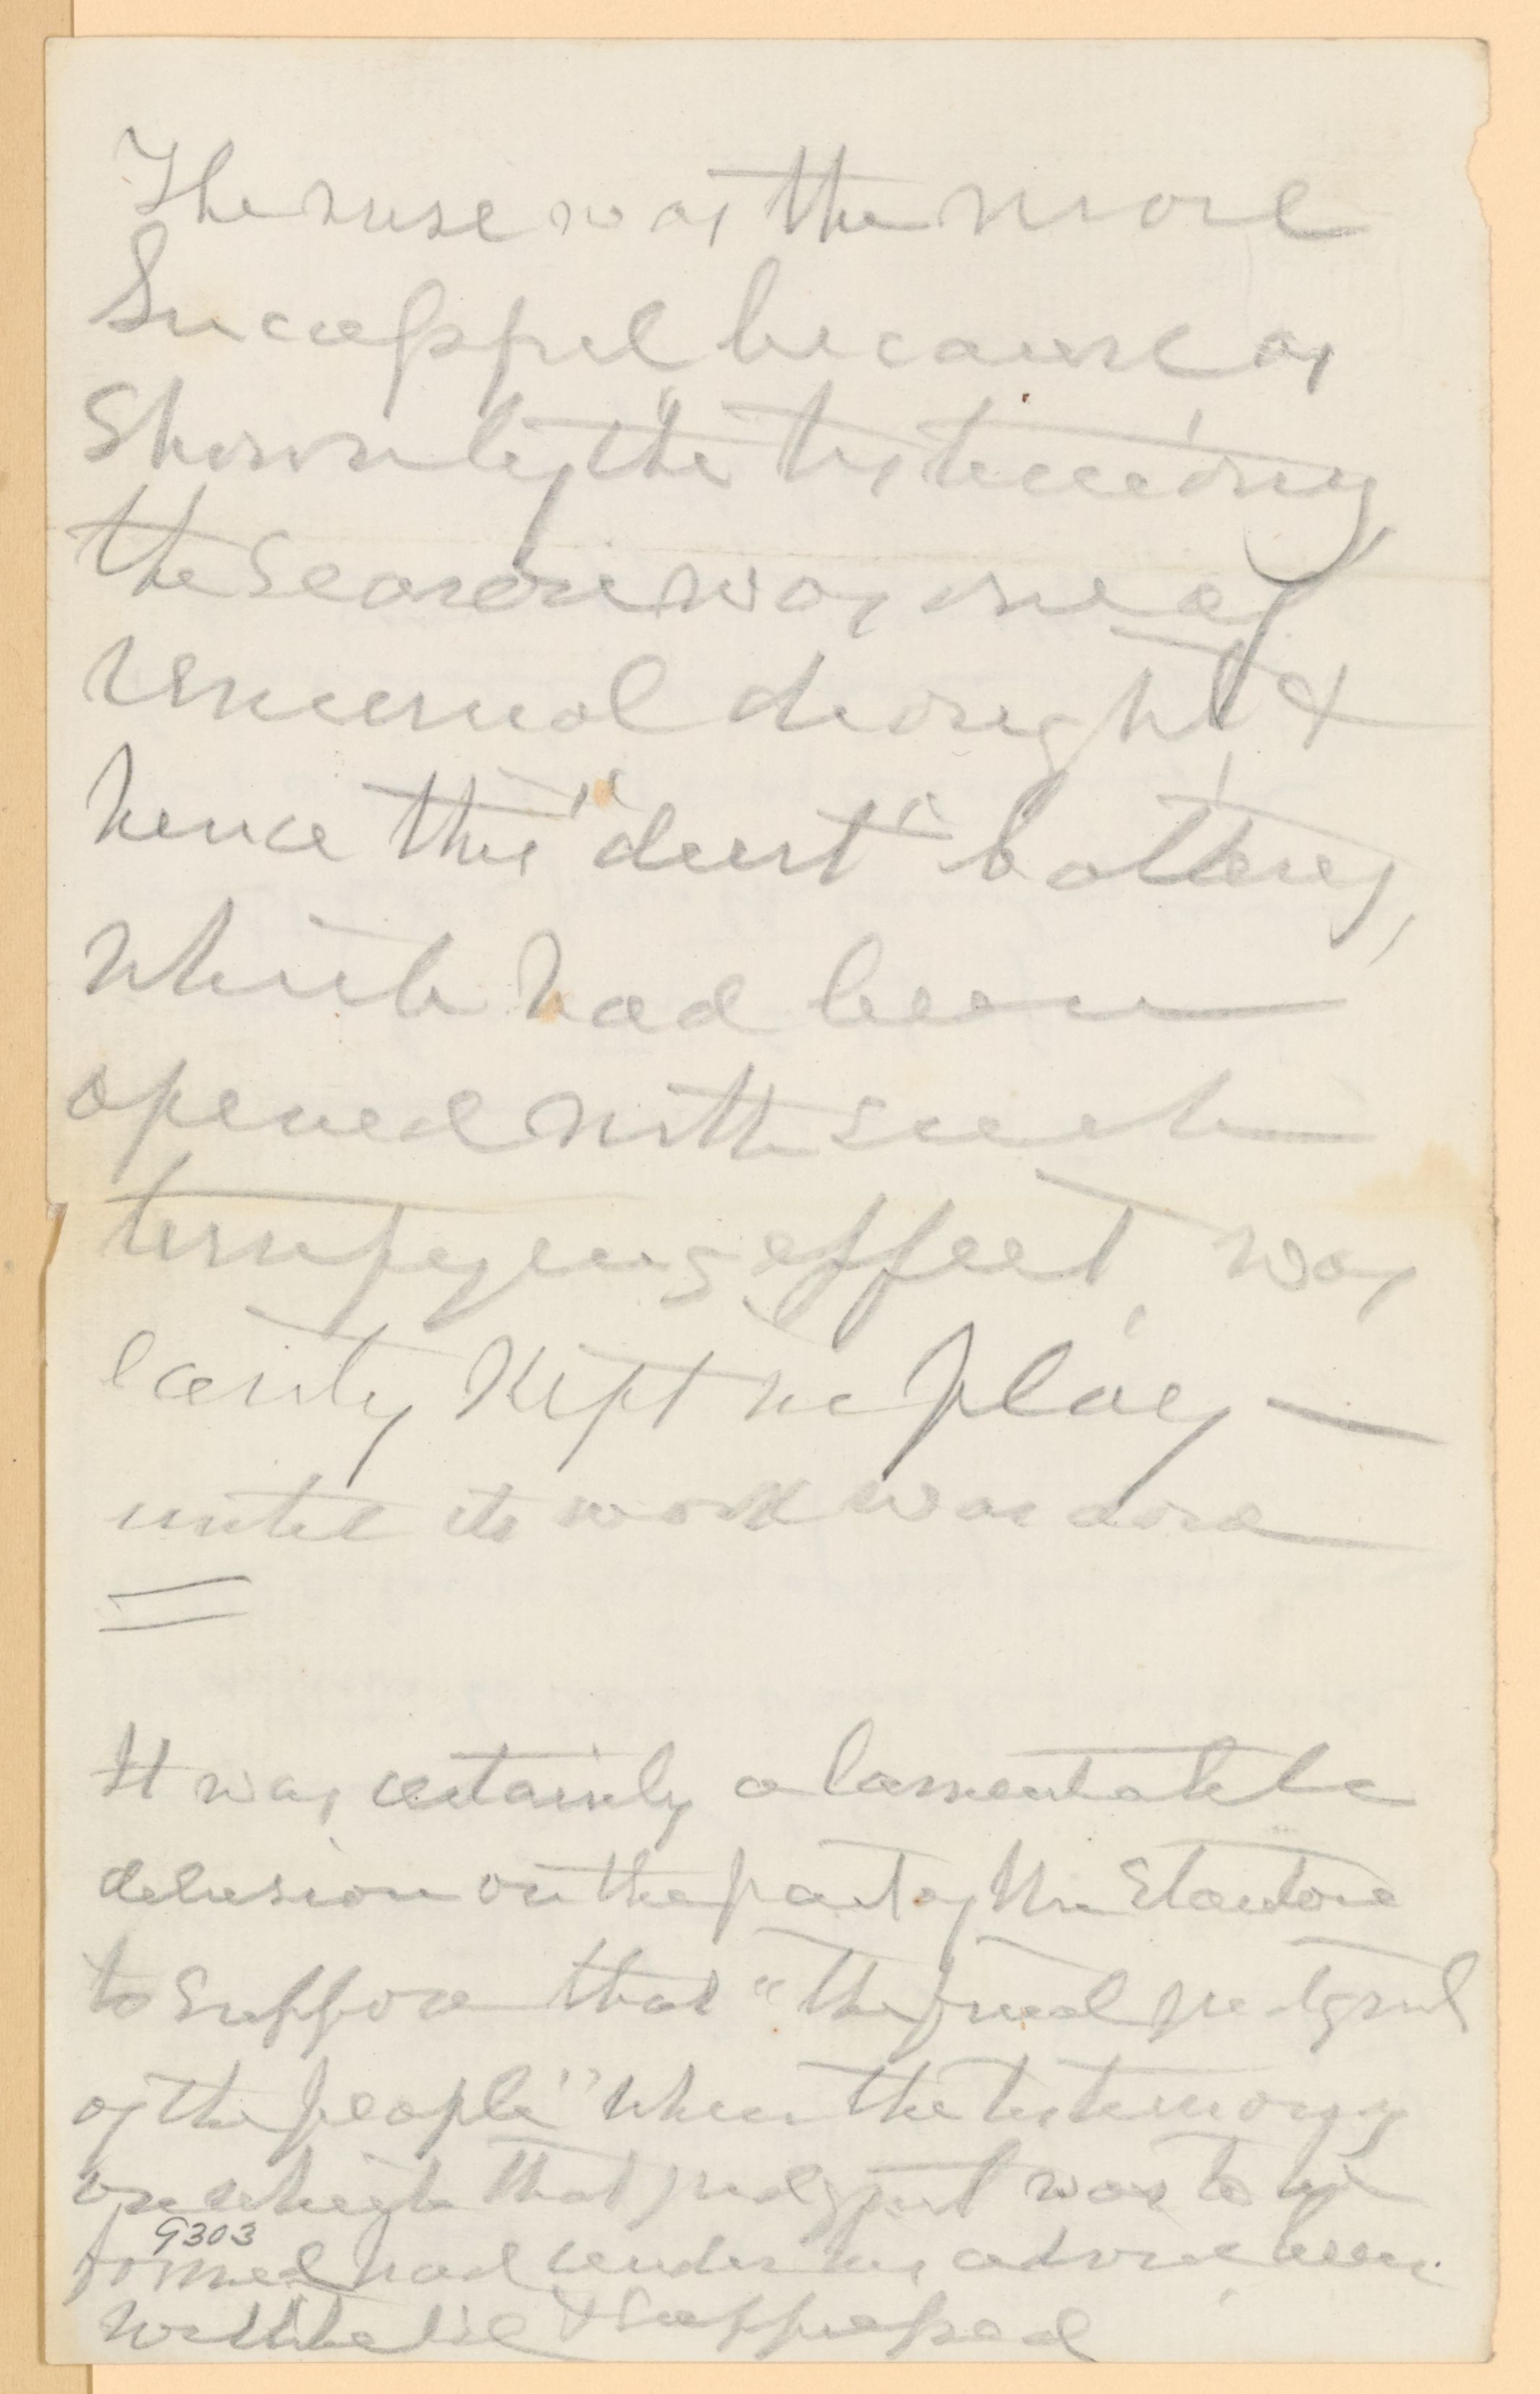 The ruse was the more
Successful because as
Shown by the testimony
the season was one of
Unusual drought &
hence this "dust" battery,
which had been
opened with such
terrifying effect, was
easily kept in play —
until its work was done
=
It was certainly a lamentable
delusion on the part of Mr Stanton
to suppose that "the final judgment
of the people" when the testimony
on which that judgment was to be
formed had under his advice been
withheld & suppressed
9303